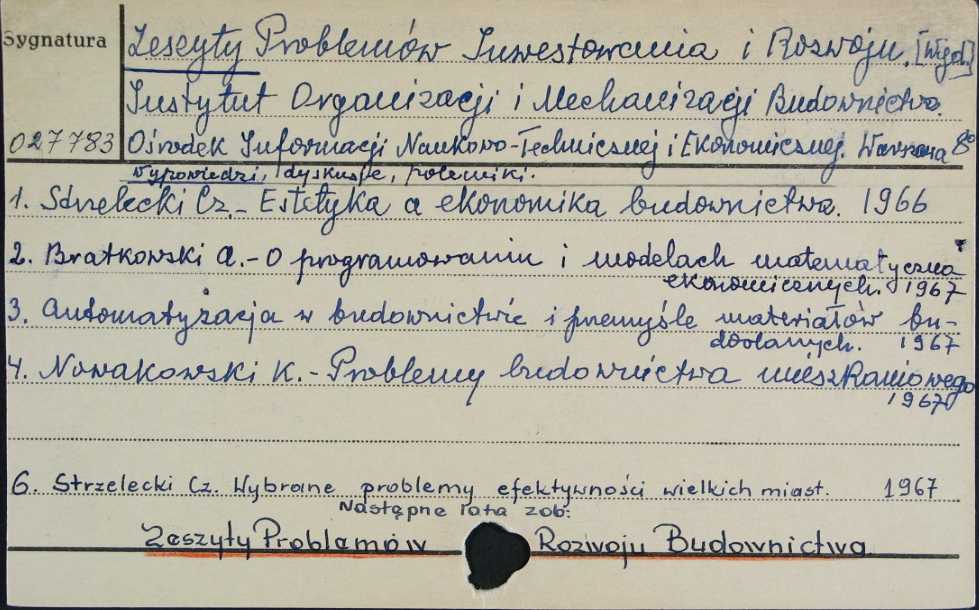 Sygnatura
Zeszyty Problemów Inwestowania i Rozwoju. [Wyd.]
Instytut Organizacji i Mechanizacji Budownictwa.
027783 Ośrodek Informacji Naukowo-Technicznej i Ekonomicznej. Warszawa 8°
Wypowiedzi, dyskusje, polemiki.
1. Strzelecki Cz. - Estetyka a ekonomika budownictwa. 1966
2. Bratkowski A. - O programowaniu i modelach matematyczno
ekonomicznych. 1967
3. Automatyzacja w budownictwie i przemyśle materiałów bu-
dowlanych. 1967
4. Nowakowski K. - Problemy budownictwa mieszkaniowego
1967
6. Strzelecki Cz. Wybrane problemy efektywności wielkich miast. 1967
Następne lata zob:
Zeszyty Problemów Rozwoju Budownictwa